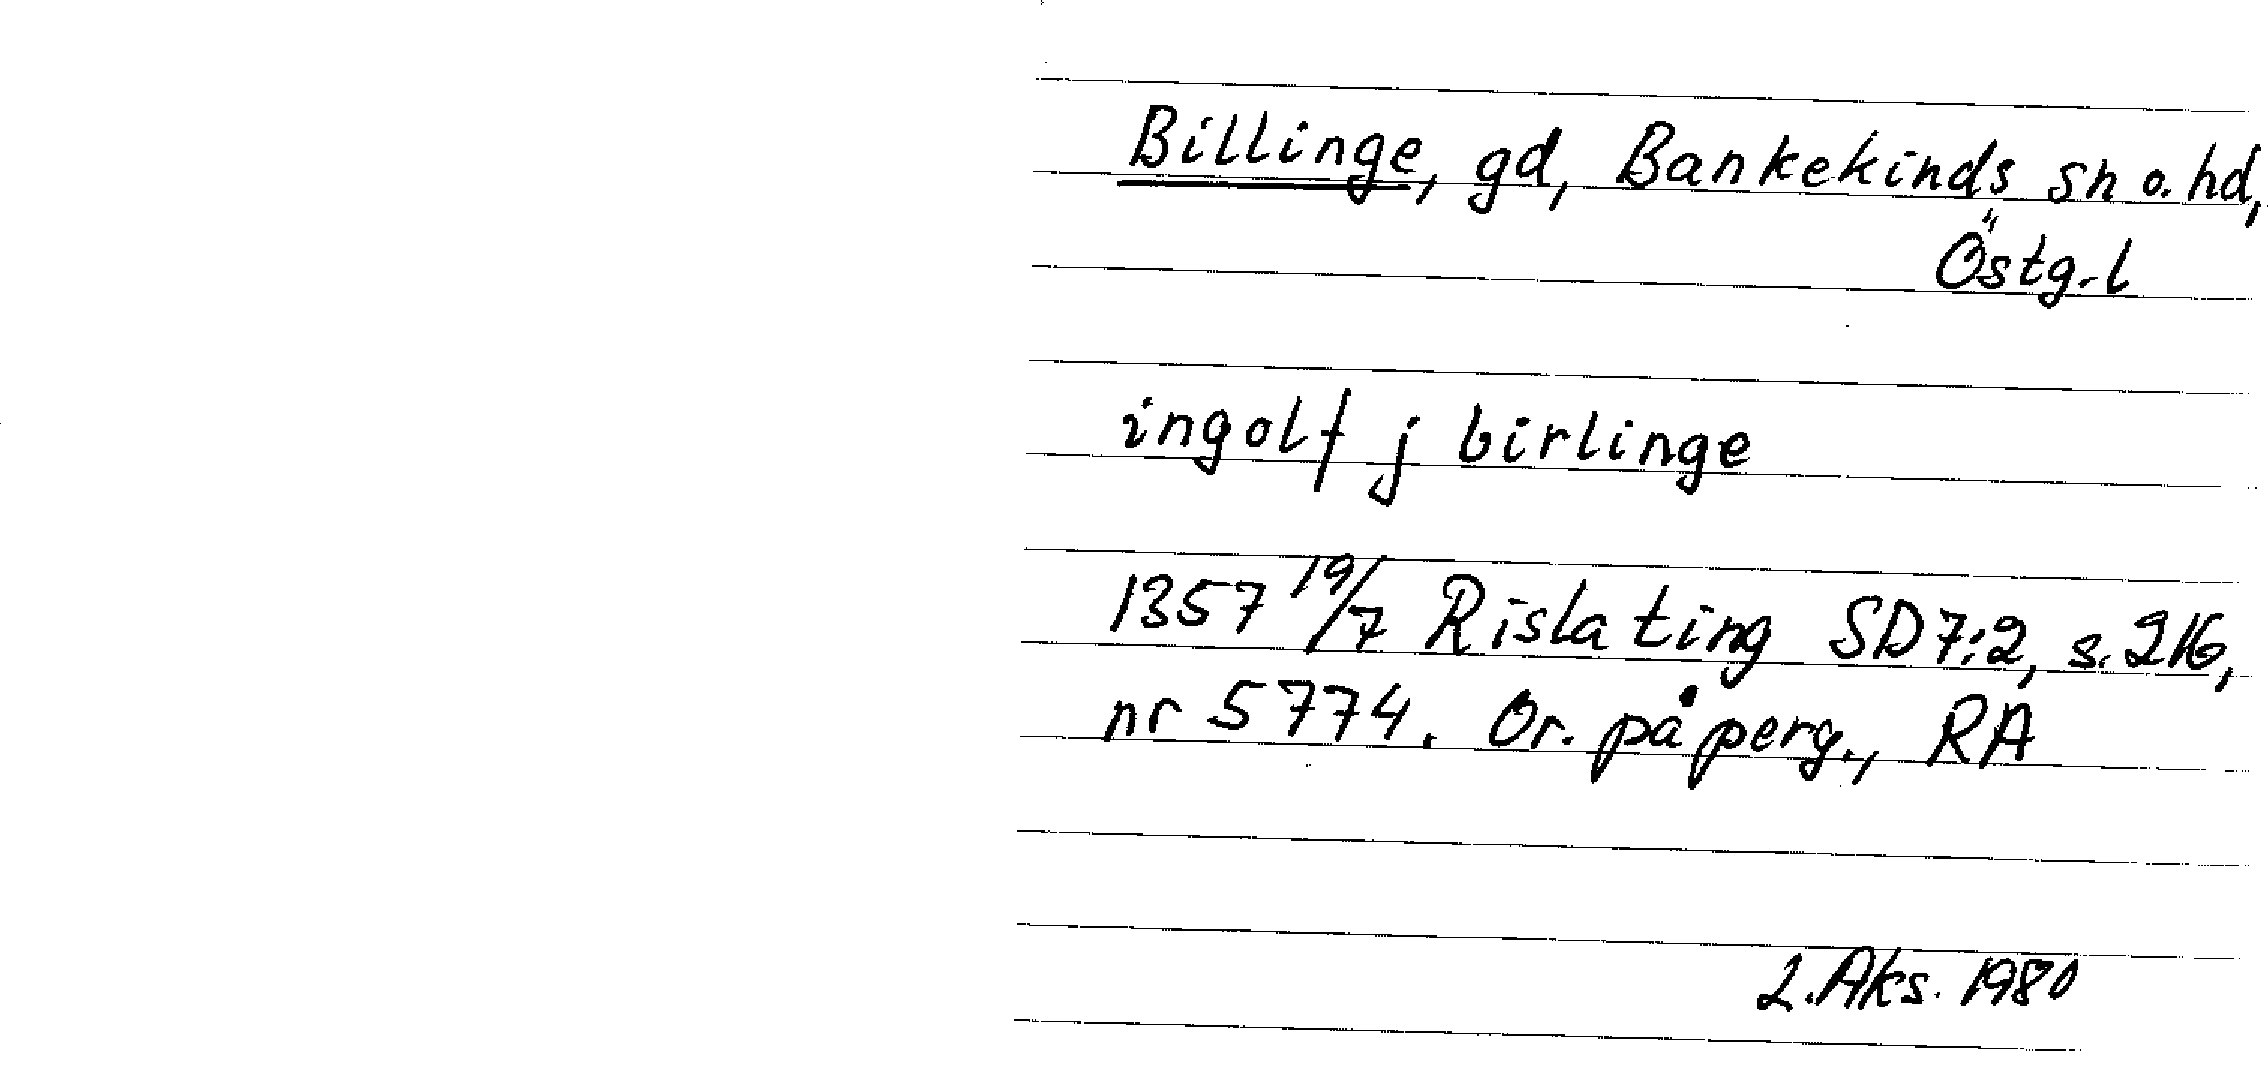 Billinge, gd, Bankekinds sn o. hd,
Östg.l
ingolf j birlinge
1357 19/7 Risla ting SD 7:2, s. 216,
nr 5774. Or. på perg., RA
L. Aks. 1980